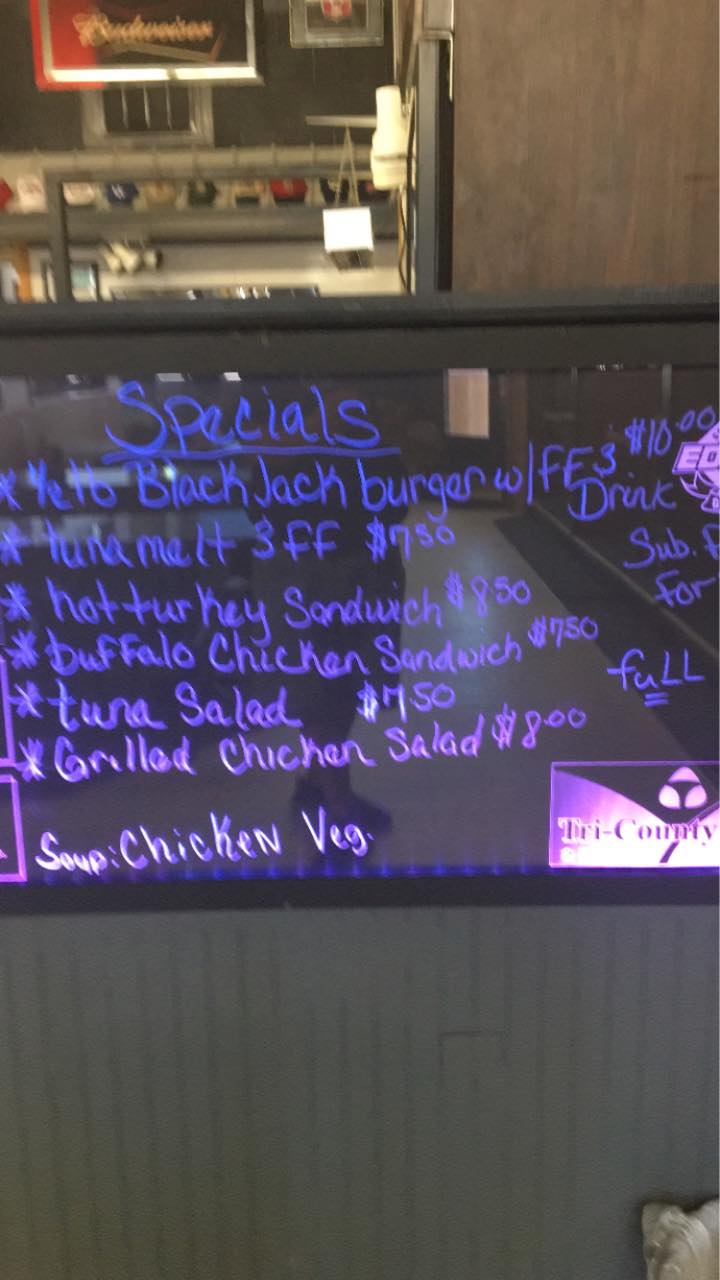 Budweiser
Specials
* 1/2 lb Black Jack burger w/ FF & Drink $10.00
* tuna melt & FF $7.50
* hot turkey Sandwich $8.50
* buffalo Chicken Sandwich $7.50
* tuna Salad $7.50
* Grilled Chicken Salad $8.00
Soup: Chicken Veg.
Sub.
for
full
Tri-County